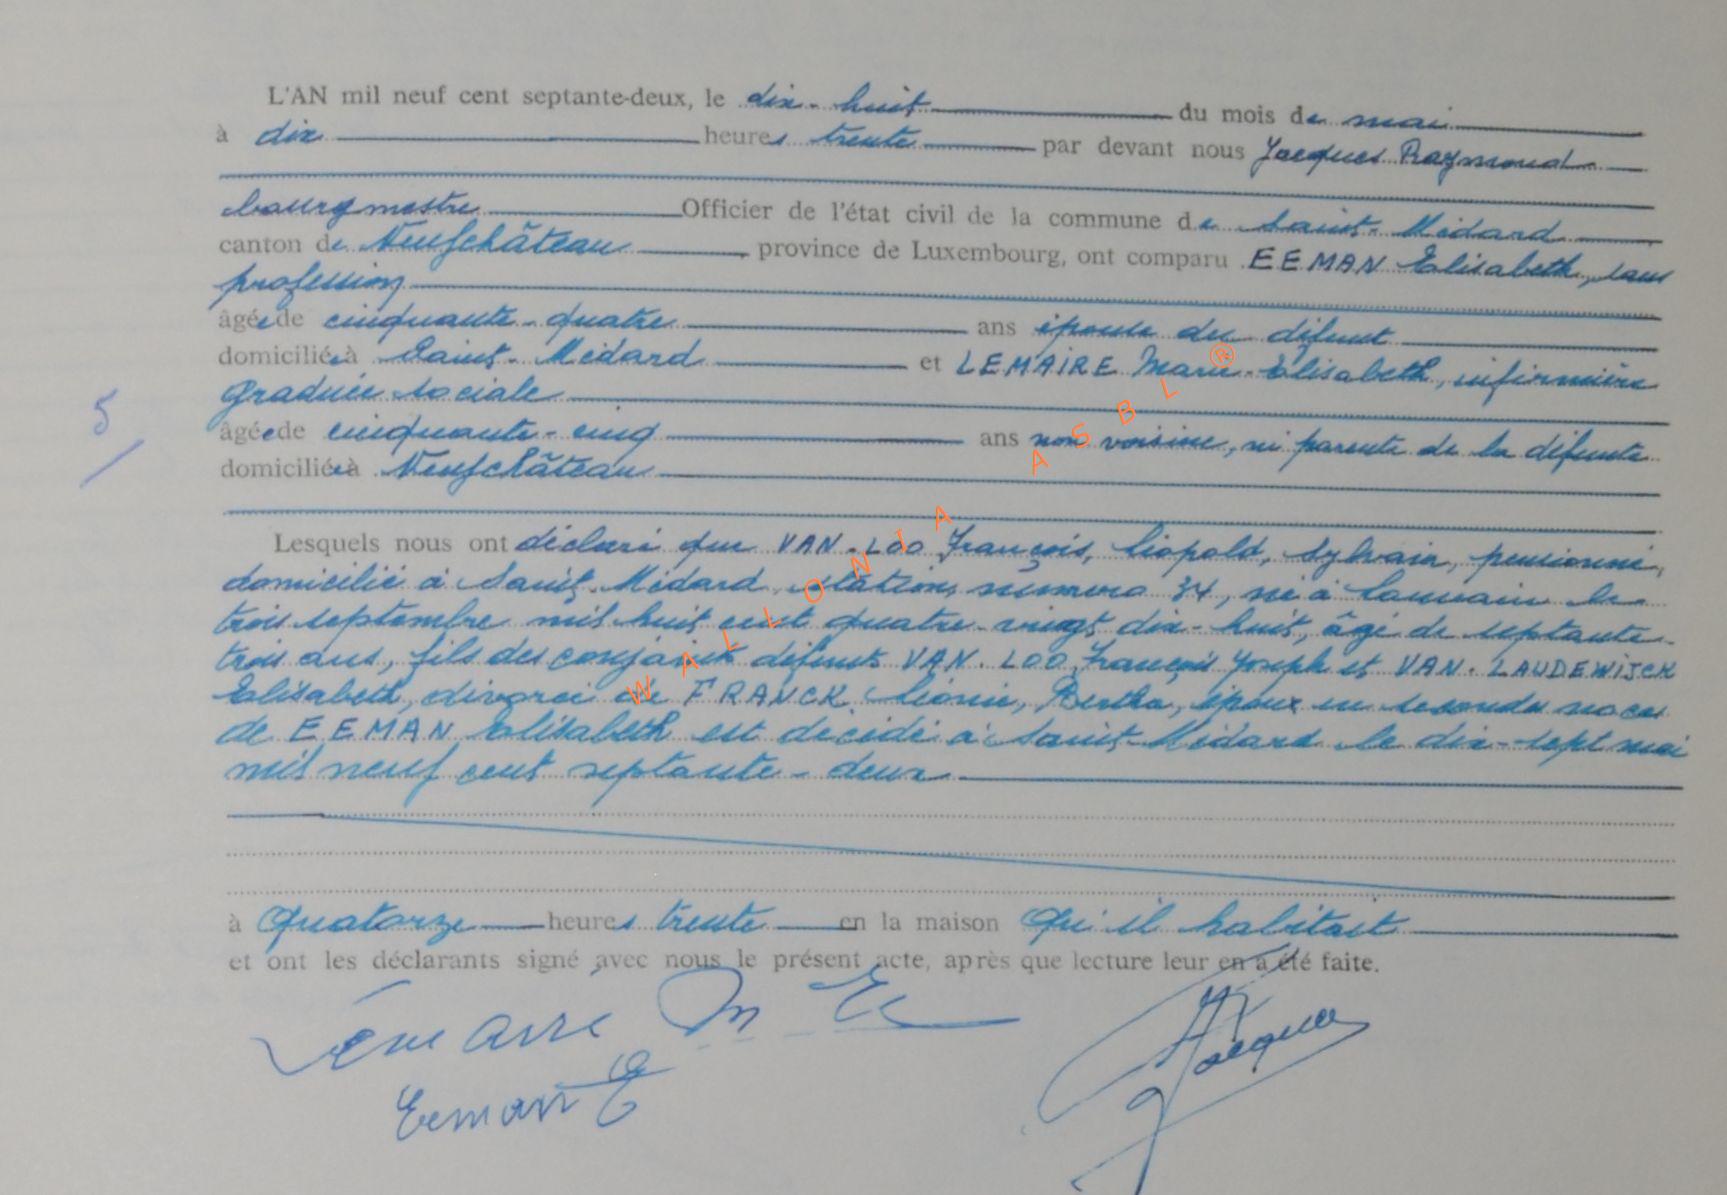 L'AN mil neuf cent septante-deux, le dix-huit du mois de mai
à dix heures trente par devant nous Jacques Raymond
bourgmestre Officier de l'état civil de la commune de Saint-Médard
canton de Neufchâteau province de Luxembourg, ont comparu EEMAN Elisabeth, sans
profession
âgée de cinquante-quatre ans épouse du défunt
domiciliée à Saint-Médard et LEMAIRE Marie-Elisabeth, infirmière
graduée sociale
âgée de cinquante-cinq ans non voisine, ni parente de la défunte
domiciliée à Neufchâteau
5
Lesquels nous ont déclaré que VAN-LOO François, Léopold, Sylvain, pensionné,
domicilié à Saint-Médard, station, numéro 34, né à Louvain le
trois septembre mil huit cent quatre-vingt dix-huit, âgé de septante-
trois ans, fils des conjoints défunts VAN-LOO, François Joseph et VAN-LAUDEWIJCK
Elisabeth, divorcé de FRANCK, Léonie, Bertha, époux en secondes noces
de EEMAN Elisabeth est décédé à Saint-Médard le dix-sept mai
mil neuf cent septante-deux
à quatorze heures trente en la maison qu'il habitait
et ont les déclarants signé avec nous le présent acte, après que lecture leur en a été faite.
Lemaire M E
Eeman E
Jacques
WALLONIA ASBL®